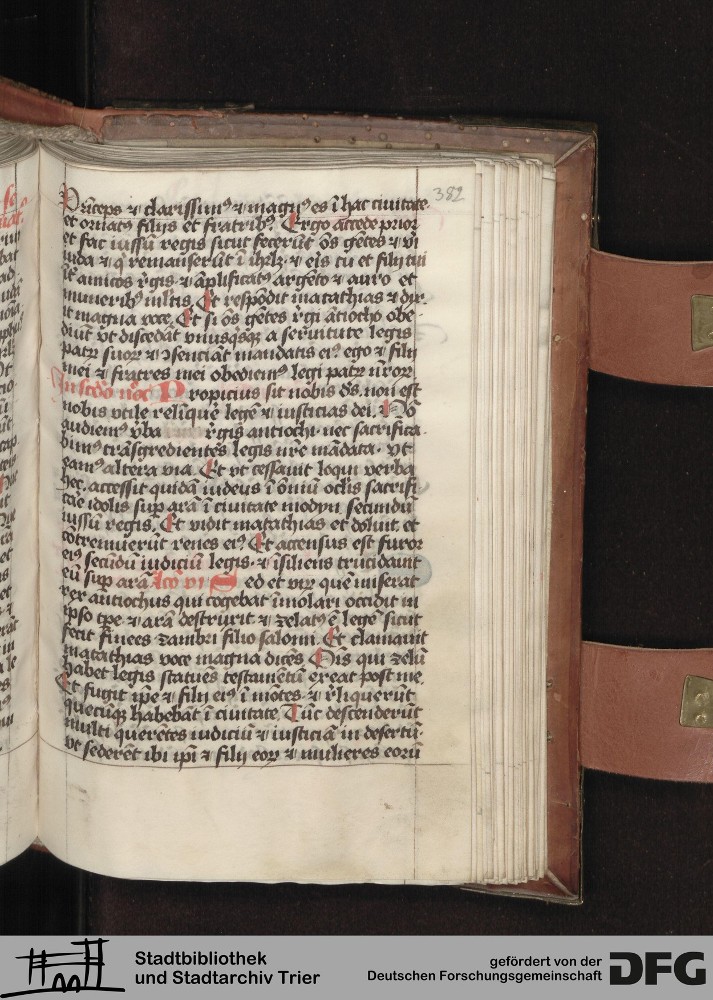 382
Princeps ⁊ clarissimꝰ ⁊ magnꝰ es ī hac ciuitate
et ornatꝰ filijs et fratribꝰ. Ergo accede prior
et fac iussū regis sicut fecerūt ōs gētes ⁊ viri
iuda ⁊ q̄ remanserūt ī ihrl̄z ⁊ eis tu et filij tui
īt̄ amicos r̄gis ⁊ āplificatꝰ argēto ⁊ auro et
muneribꝰ ml̄tis. Et respōdit matathias ⁊ dix
it magna voce. Et si ōs gētes r̄gi ātiocho obe
diūt vt discedāt vnusqsqꝫ a seruitute legis
patꝝ suoꝝ ⁊ ↄsenciāt mandatis eiꝰ ego ⁊ filij
mei ⁊ fratres mei obediemꝰ legi patꝝ nr̄oꝝ
In scd̄o noc̄ Propicius sit nobis ds̄. non est
nobis vtile relīquē legē ⁊ iusticias dei. Nō
audiemꝰ v̄ba r̄gis antiochi. nec sacrifica
bimꝰ trāsgredientēs legis nr̄e mādata. vt
eamꝰ altera via. Et vt cessauit loqui verba
hec. accessit quidā iudeus ī ōniū oc̄lis sacrifi
care idolis suꝑ arā ī ciuitate modyn secundū
iussū regis. Et vidit matathias et doluit et
cōtremuerūt renes eiꝰ Et accensus est furor
eiꝰ secūdū iudiciū legis. ⁊ īsiliens trucidauit
eū suꝑ arā Lco vi Sed et viꝝ quē miserat
rex antiochus qui cogebat īmolari occidit in
ipso tꝑe ⁊ arā destruxit ⁊ zelatꝰ ē legē sicut
fecit finees zambri filio salomi. Et clamauit
matathias voce magna dicēs Om̄is qui zelū
habet legis statuēs testamētū exeat post me.
Et fugit ip̄e ⁊ filij eiꝰ ī mōtes ⁊ r̄liquerūt
quecūqꝫ habebāt ī ciuitate. Tūc descenderūt
multi querētes iudiciū ⁊ iusticiā in desertū.
vt sederēt ibi ip̄i ⁊ filij eoꝝ ⁊ mulieres eorū
Stadtbibliothek
und Stadtarchiv Trier
gefördert von der
Deutschen Forschungsgemeinschaft
DFG